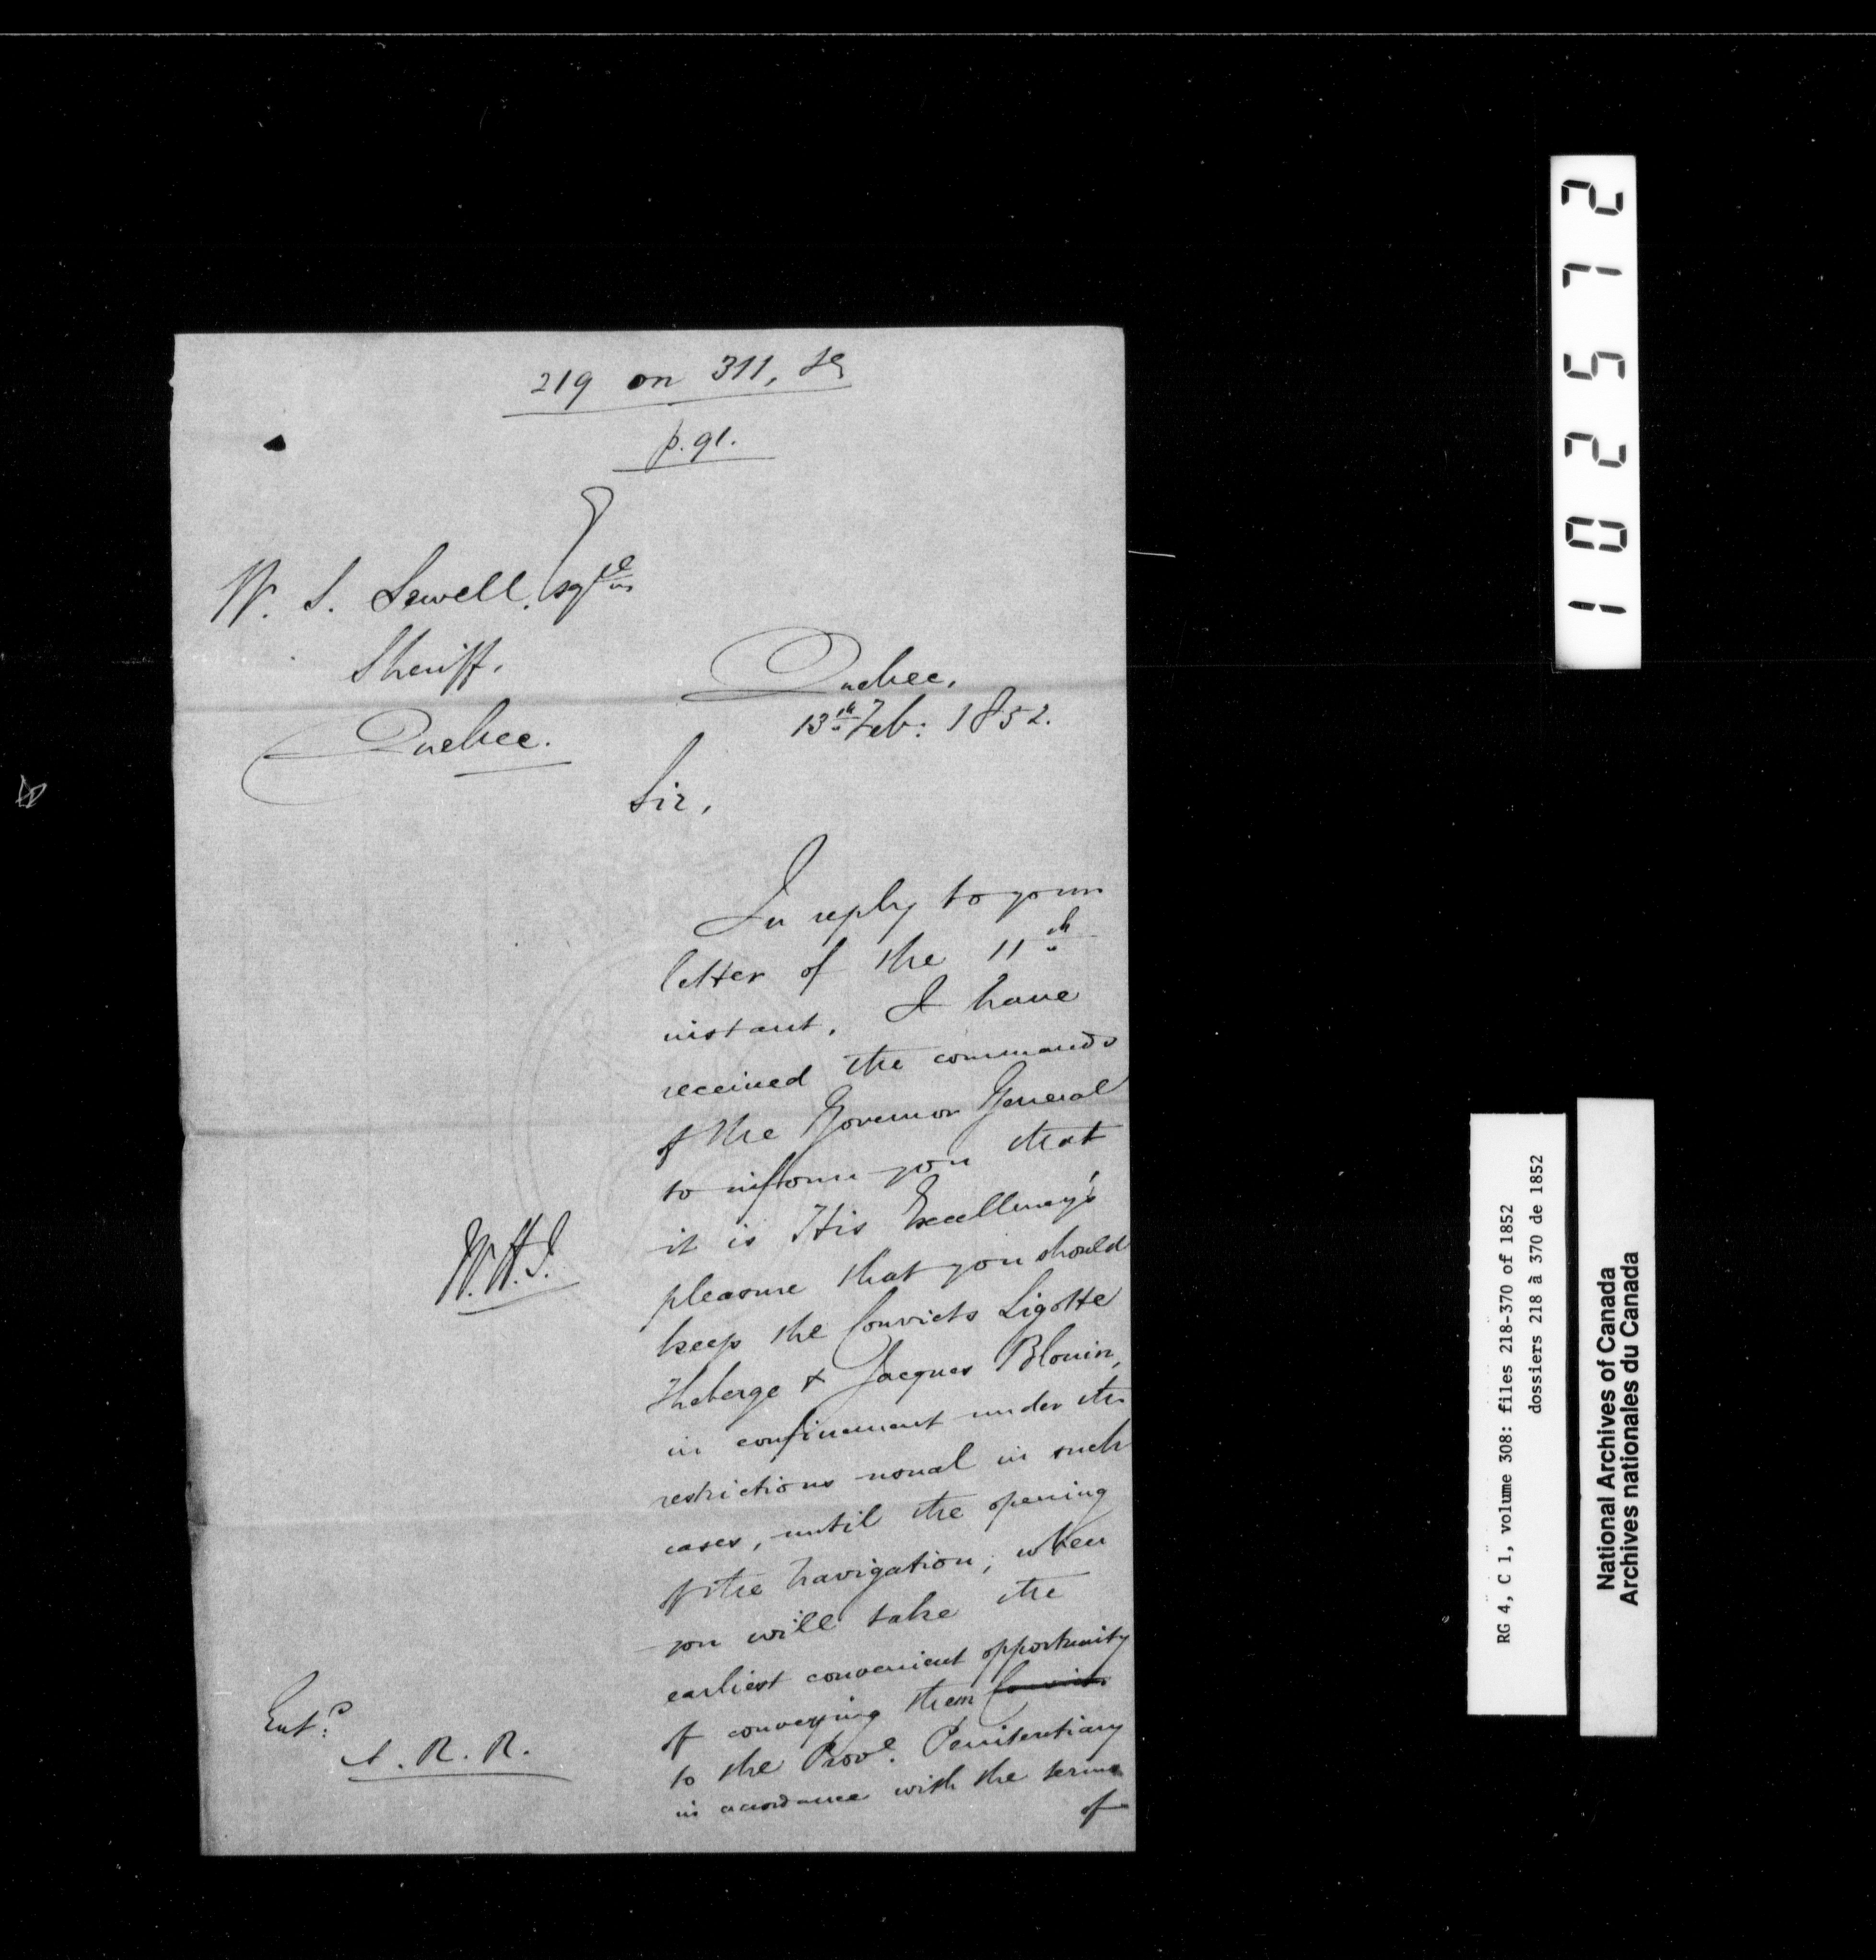 219 on 311,
p. 91.
W. S. Sewell, Esqre
Sheriff,
Quebec.
Quebec,
13th Feb: 1852.
Sir,
In reply to your
letter of the 11th
instant, I have
received the commands
of the Governor General
to inform you that
it is His Excellency's
pleasure that you should
keep the Convicts Ligotte
Theberge & Jacques Blouin,
in confinement under the
restrictions usual in such
cases, until the opening
of the navigation, when
you will take the
earliest convenient opportunity
of conveying them
to the Provl. Penitentiary
in accordance with the terms
of
Entd.
A. R. R.
102572
RG 4, C 1, volume 308: files 218-370 of 1852
dossiers 218 à 370 de 1852
National Archives of Canada
Archives nationales du Canada